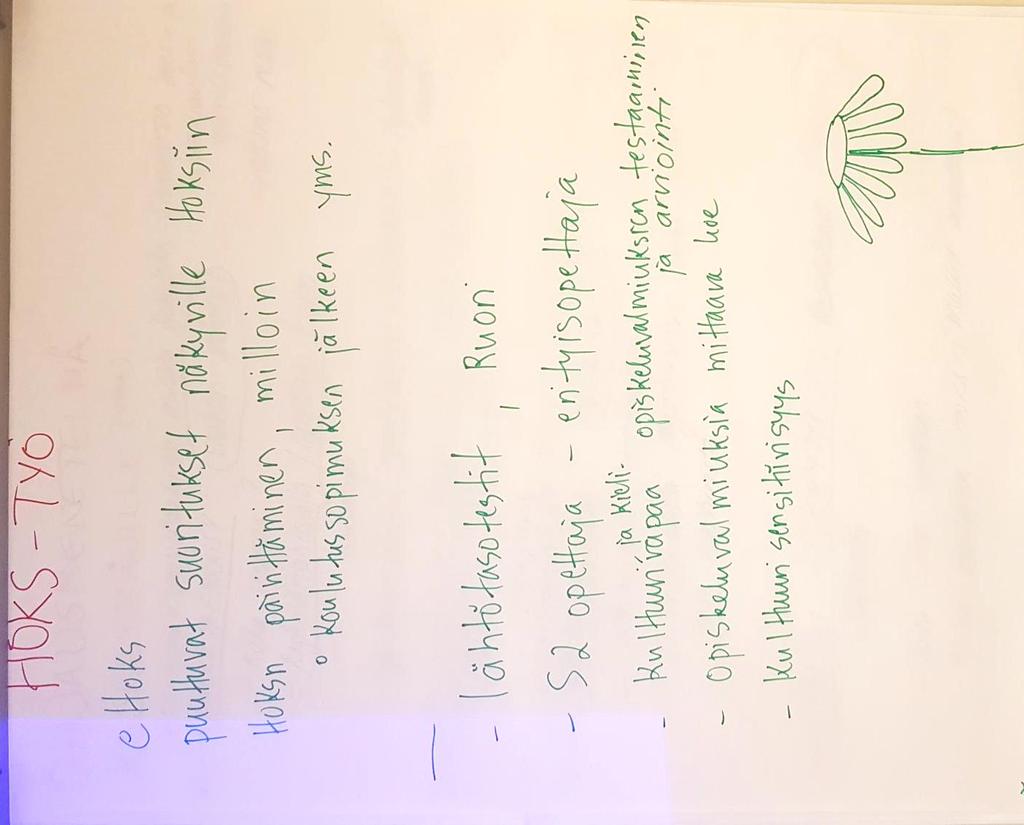 HOKS-TYÖ
eHoks
puuttuvat suoritukset näkyville Hoksiin
Hoksn päivittäminen, milloin
° koulutussopimuksen jälkeen yms.
- lähtötasotestit, Ruori
- S2 opettaja - erityisopettaja
- kulttuurivapaa ja kieli- opiskeluvalmiuksien testaaminen
ja arviointi
- Opiskeluvalmiuksia mittaava koe
- kulttuurisensitiivisyys